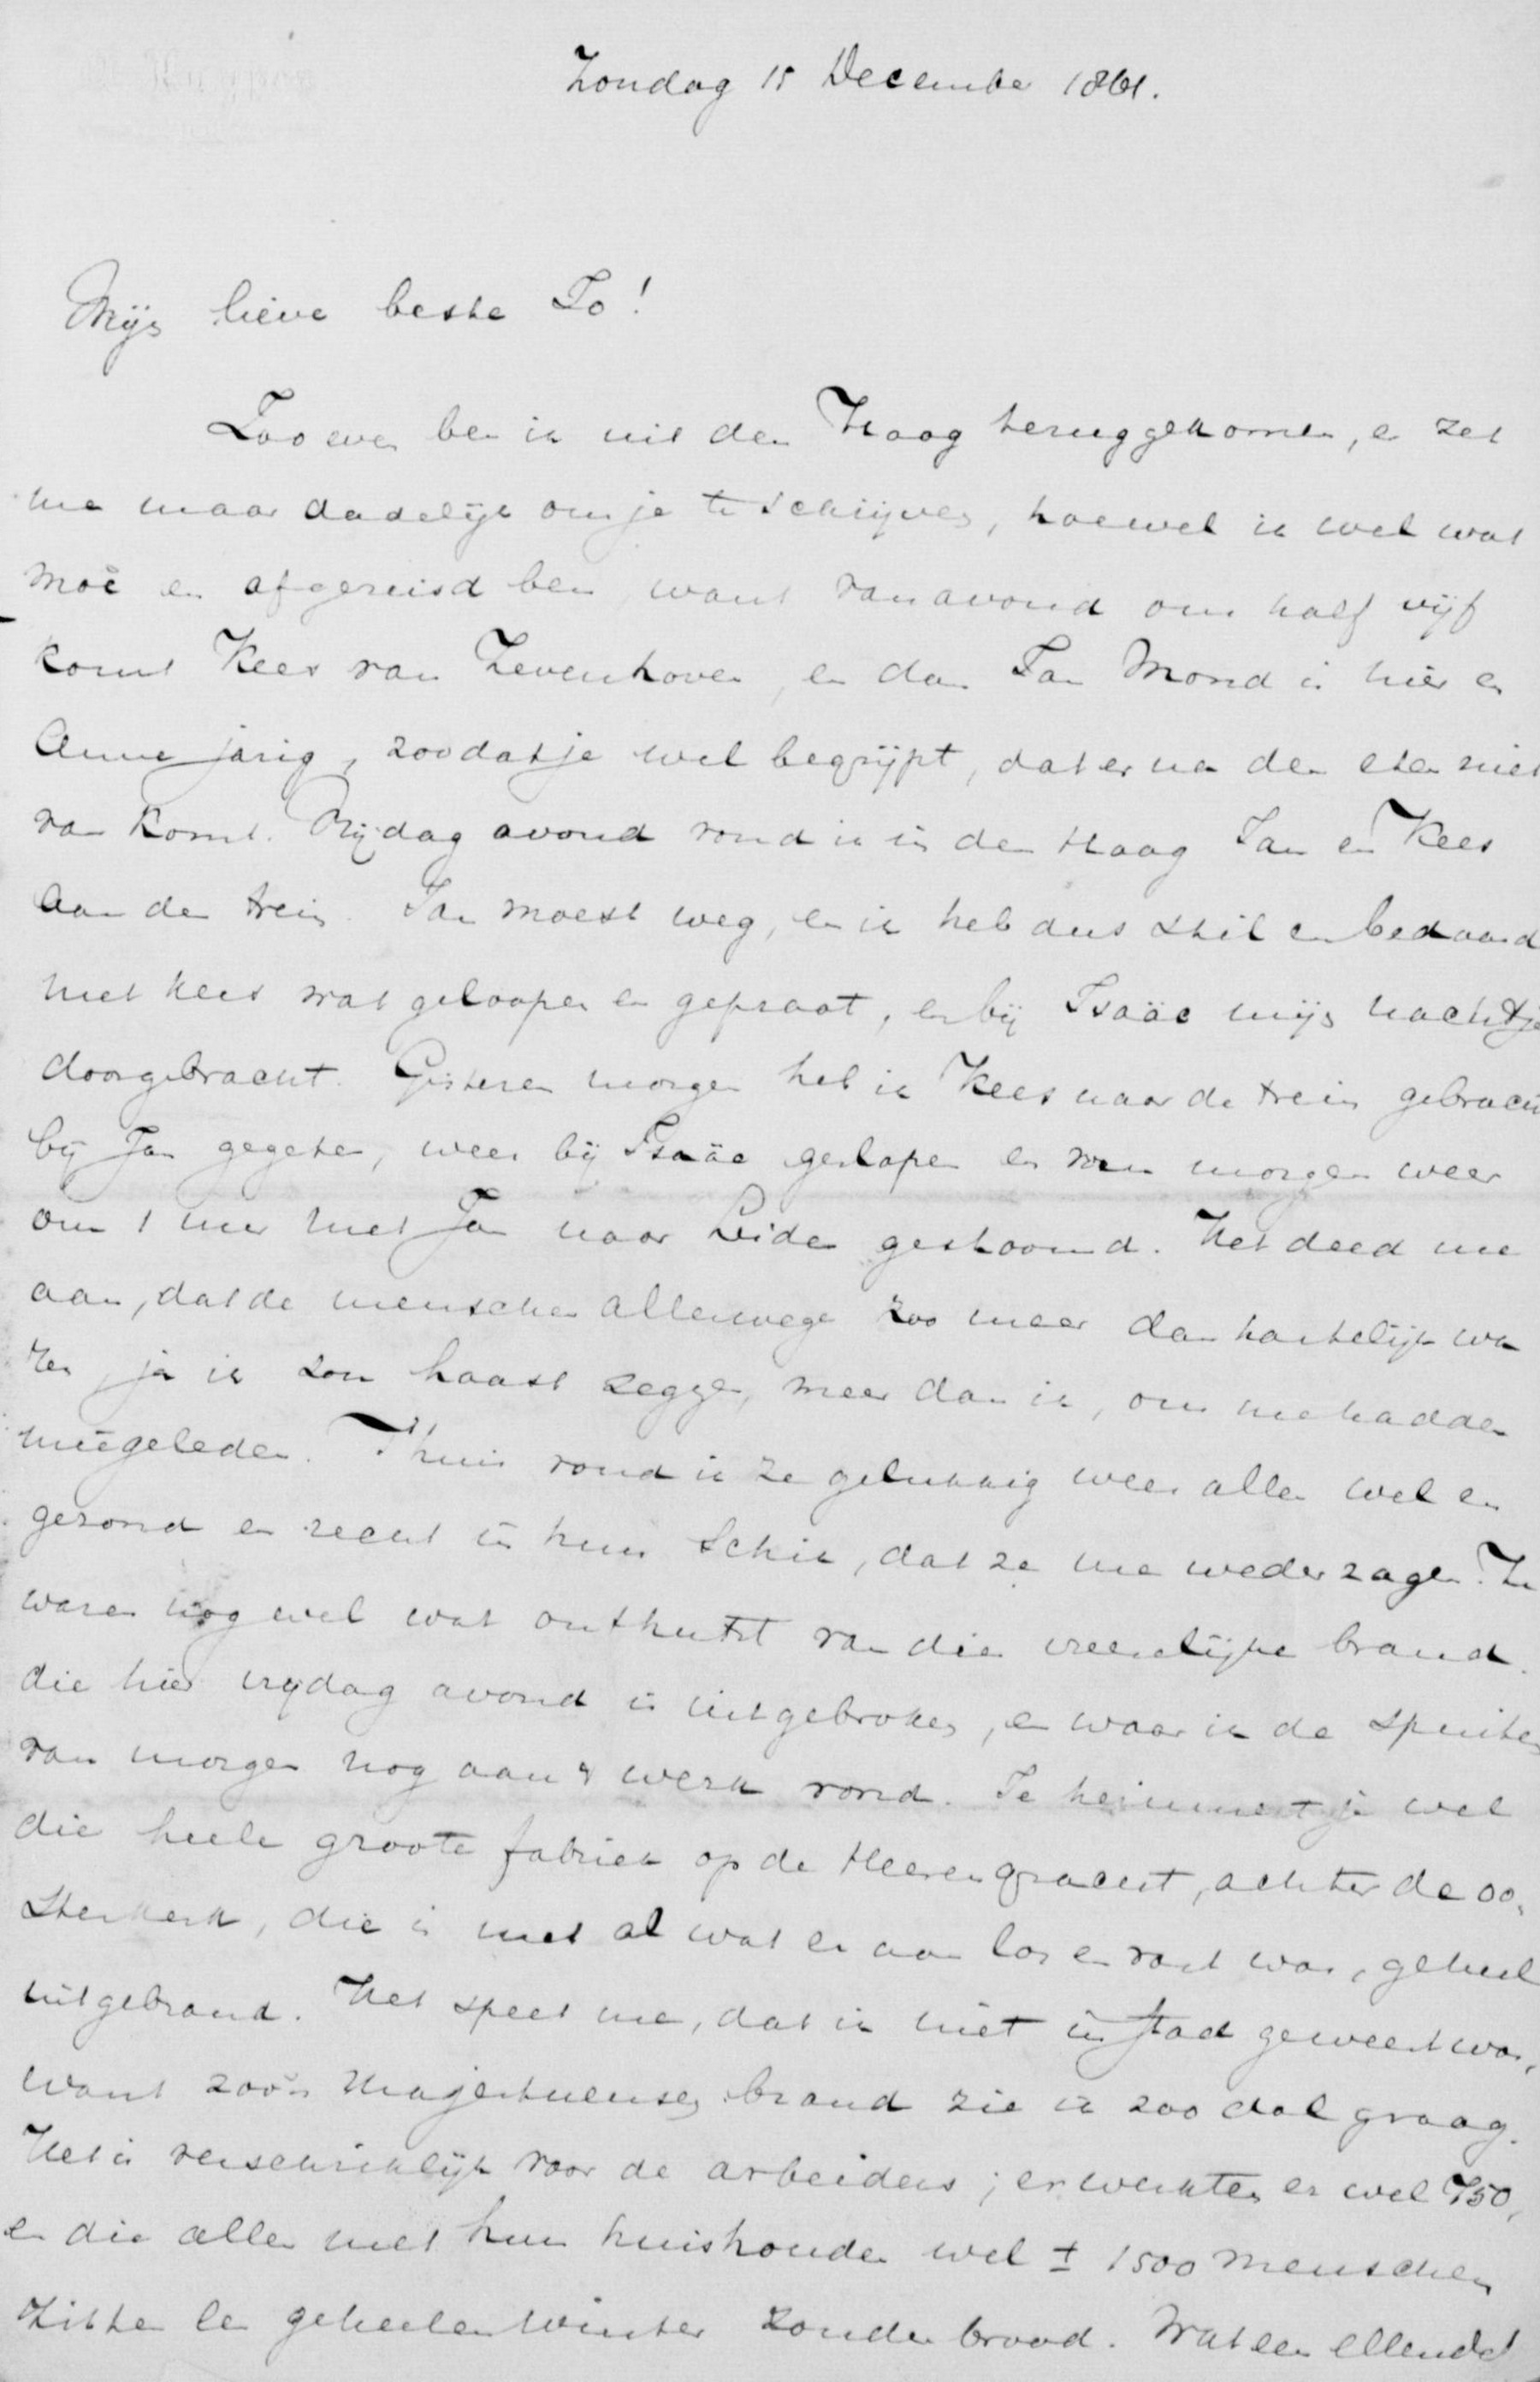 Zondag 15 December 1861.
Mijn lieve beste To!
Zoo even ben ik uit den Haag teruggekomen, en zet
me maar dadelijk om je te schrijven, hoewel ik wel wat
moê en afgereisd ben, want van avond om half vijf
komt Kees van Zevenhoven, en dan Jan Mond is hier en
Anne jarig, zoodat je wel begrijpt, dat er na den eten niet
van komt. Vrijdag avond vond ik in den Haag Jan en Kees
aan den trein. Jan moest weg, en ik heb dus stil en bedaard
met Kees wat geloopen en gepraat, en bij Isaäc mijn nachtje
doorgebracht. Gisteren morgen heb ik Kees naar de trein gebracht
bij Jan gegeten, weer bij Isaäc geslapen en van morgen weer
om 1 uur met Jan naar Leiden gestoomd. Het deed me
aan, dat de menschen allerwege zoo meer dan hartelijk wa
ren, ja ik zou haast zeggen, meer dan ik, om me hadden
meêgeleden. Thuis vond ik ze gelukkig weer allen wel en
gezond en recht in hun schik, dat ze me weder zagen. Ze
waren nog wel wat onthutst van dien vreeselijken brand.
die hier vrydag avond is uitgebroken, en waar ik de spuiten
van morgen nog aan 't werk vond. Je herinnert je wel
die heele groote fabriek op de Heerengracht, achter de oo,
sterkerk, die is met al wat er aan los en vast was, geheel
uitgebrand. Het speet me, dat ik niet in stad geweest was,
want zoo'n majestueusen brand zie ik zoo dol graag.
Het is verschrikkelijk voor de arbeiders; er werkten er wel 750,
en die allen met hun huishouden wel ± 1500 menschen
zitten een geheelen winter zonder brood. Wat een ellende!